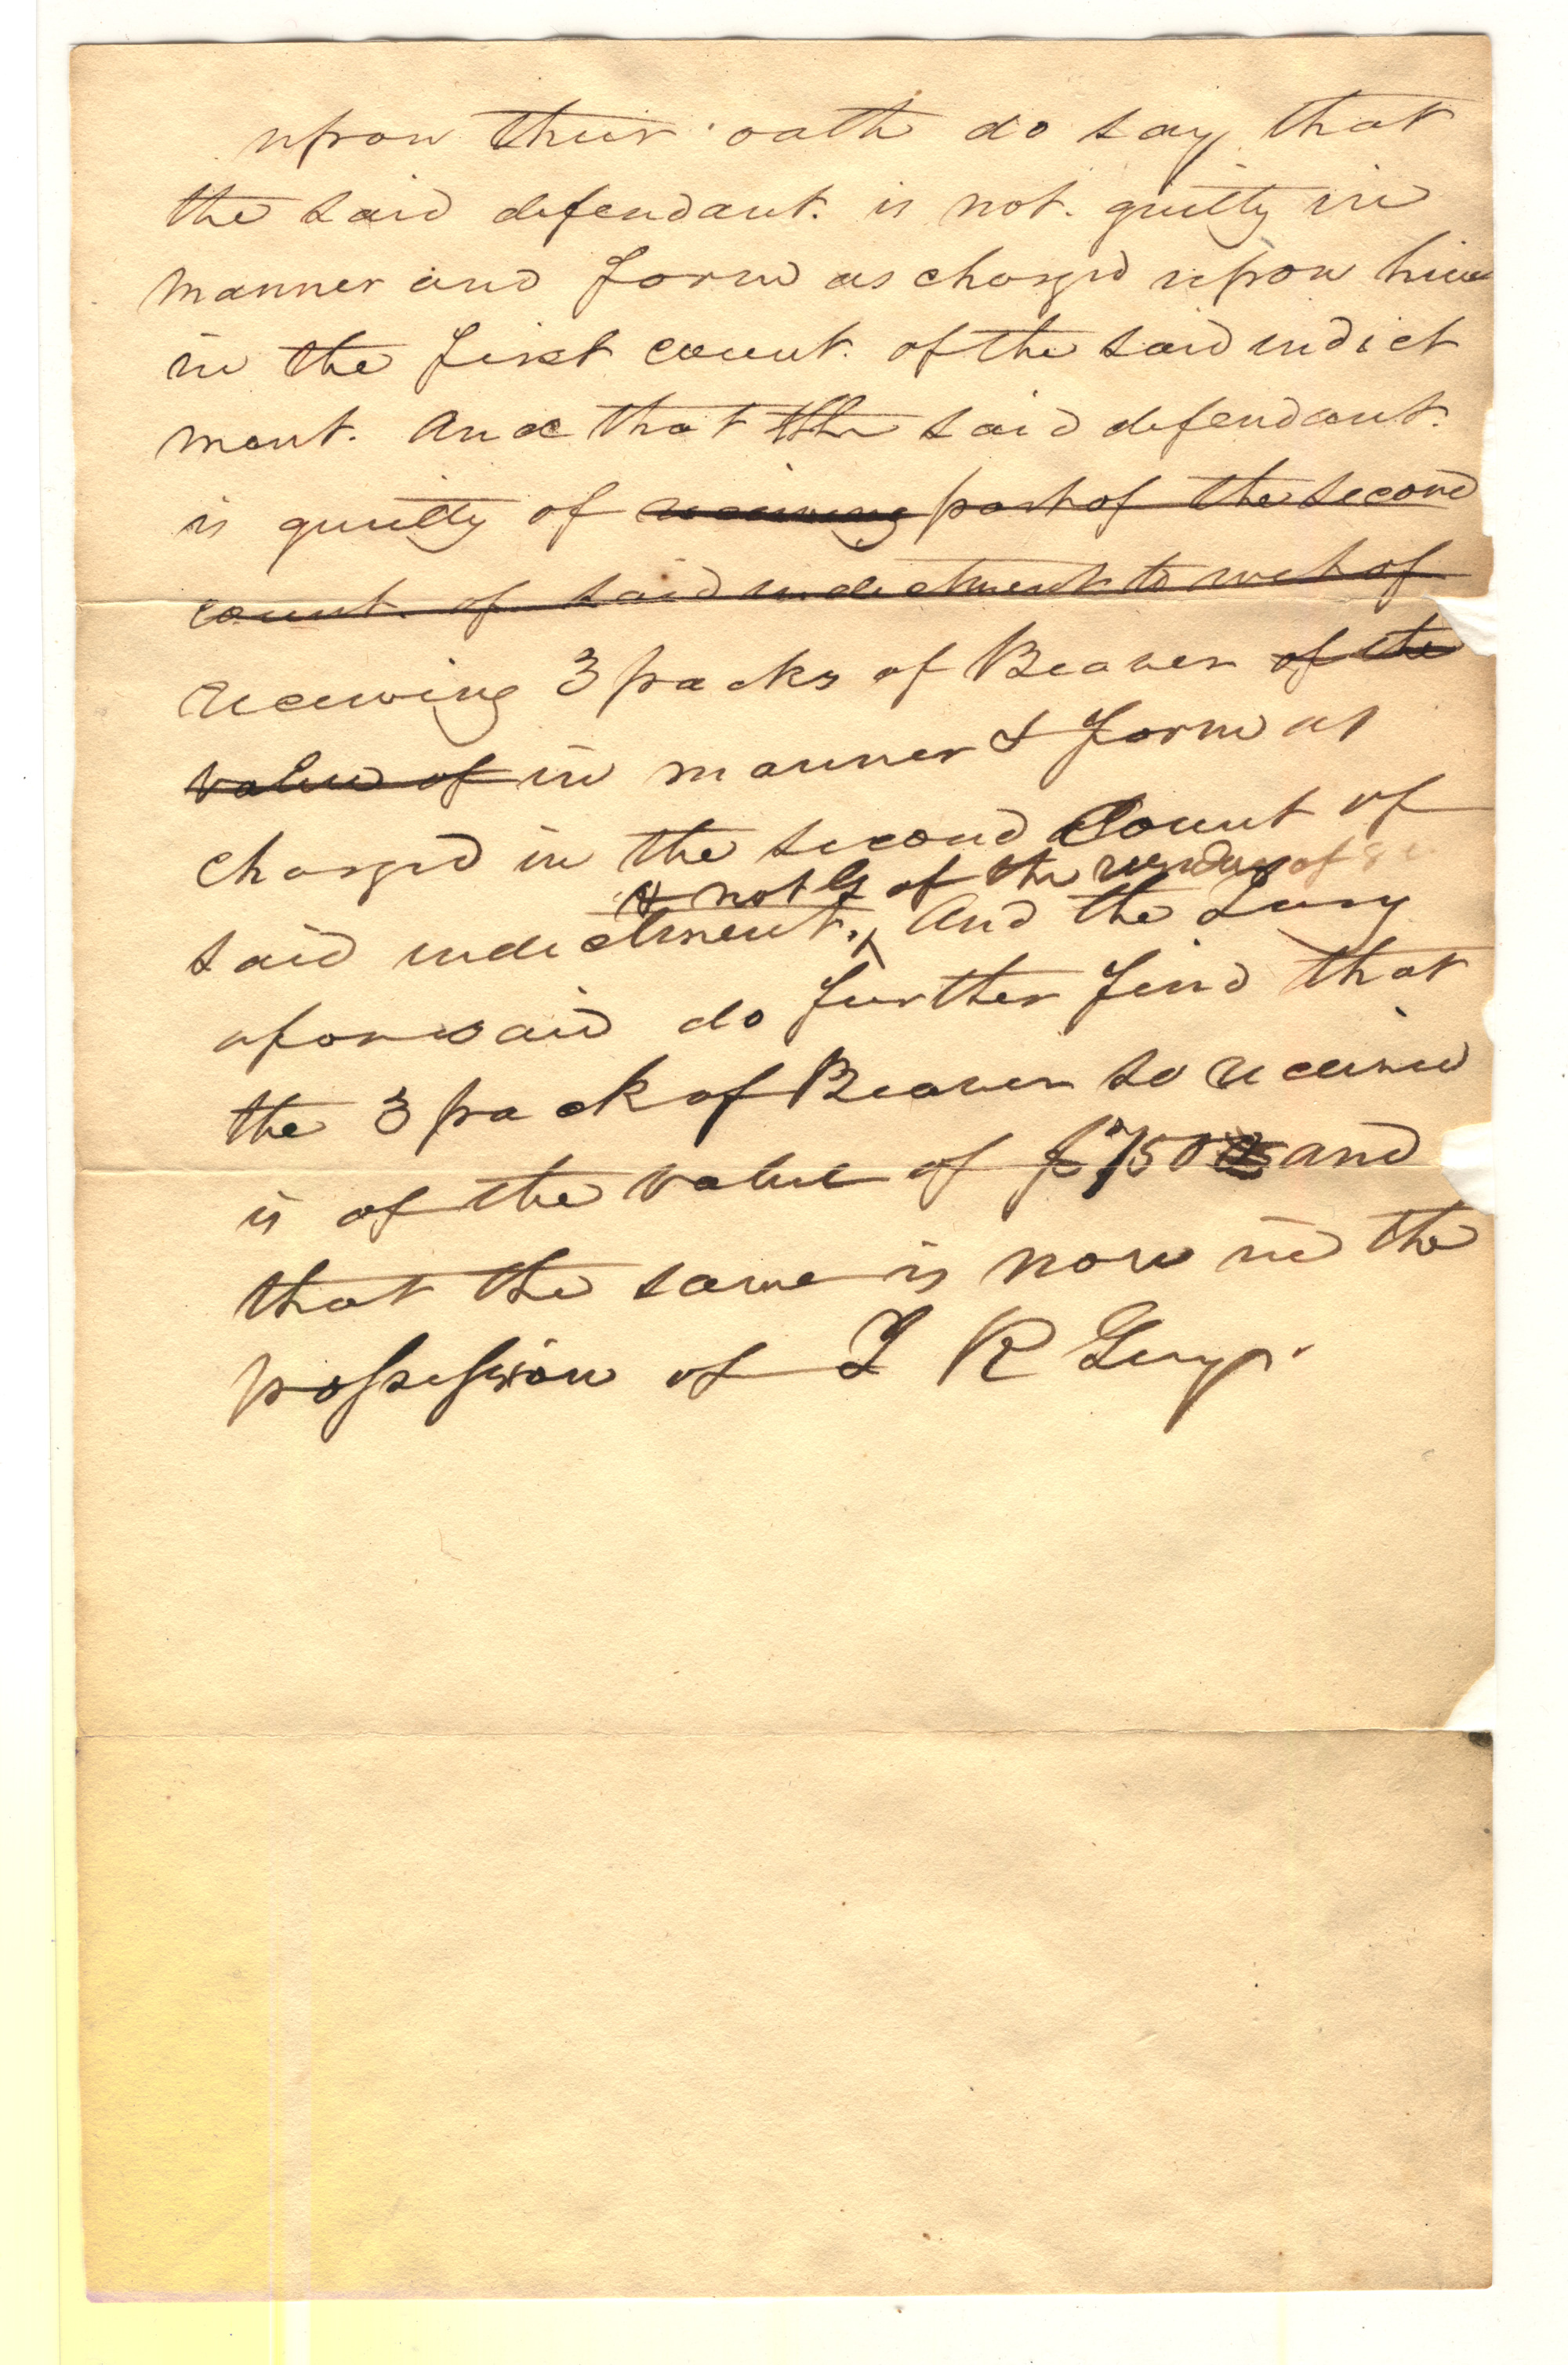 upon their oath do say that
the said defendant. is not. guilty in
manner and form as charged upon him
in the first count. of the said indict
ment. And that the said defendant.
is guilty of receiving part of the second
count. of said indictment to wit of
receiving 3 packs of Beaver of the
value of in manner & form as
charged in the second Count of
& not G of the residue of
said indictment. And the Jury
aforesaid do further find that
the 3 pack of Beaver so received
is of the value of $750 and
that the same is now in the
possession of